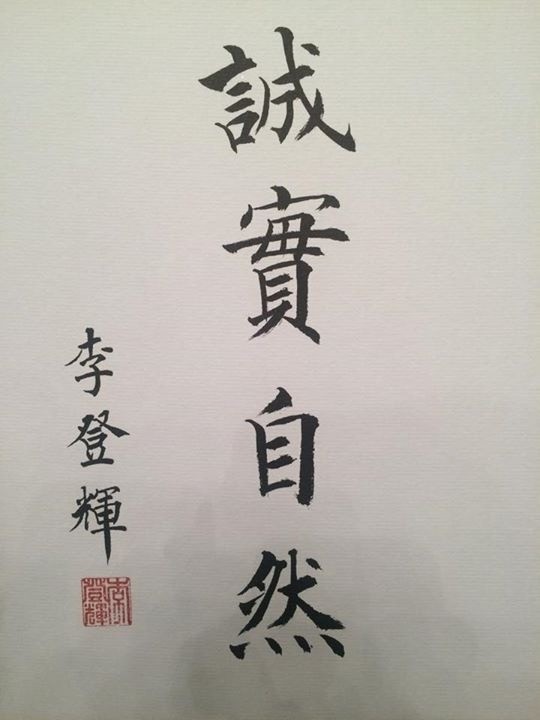 誠實自然
李登輝
李登輝